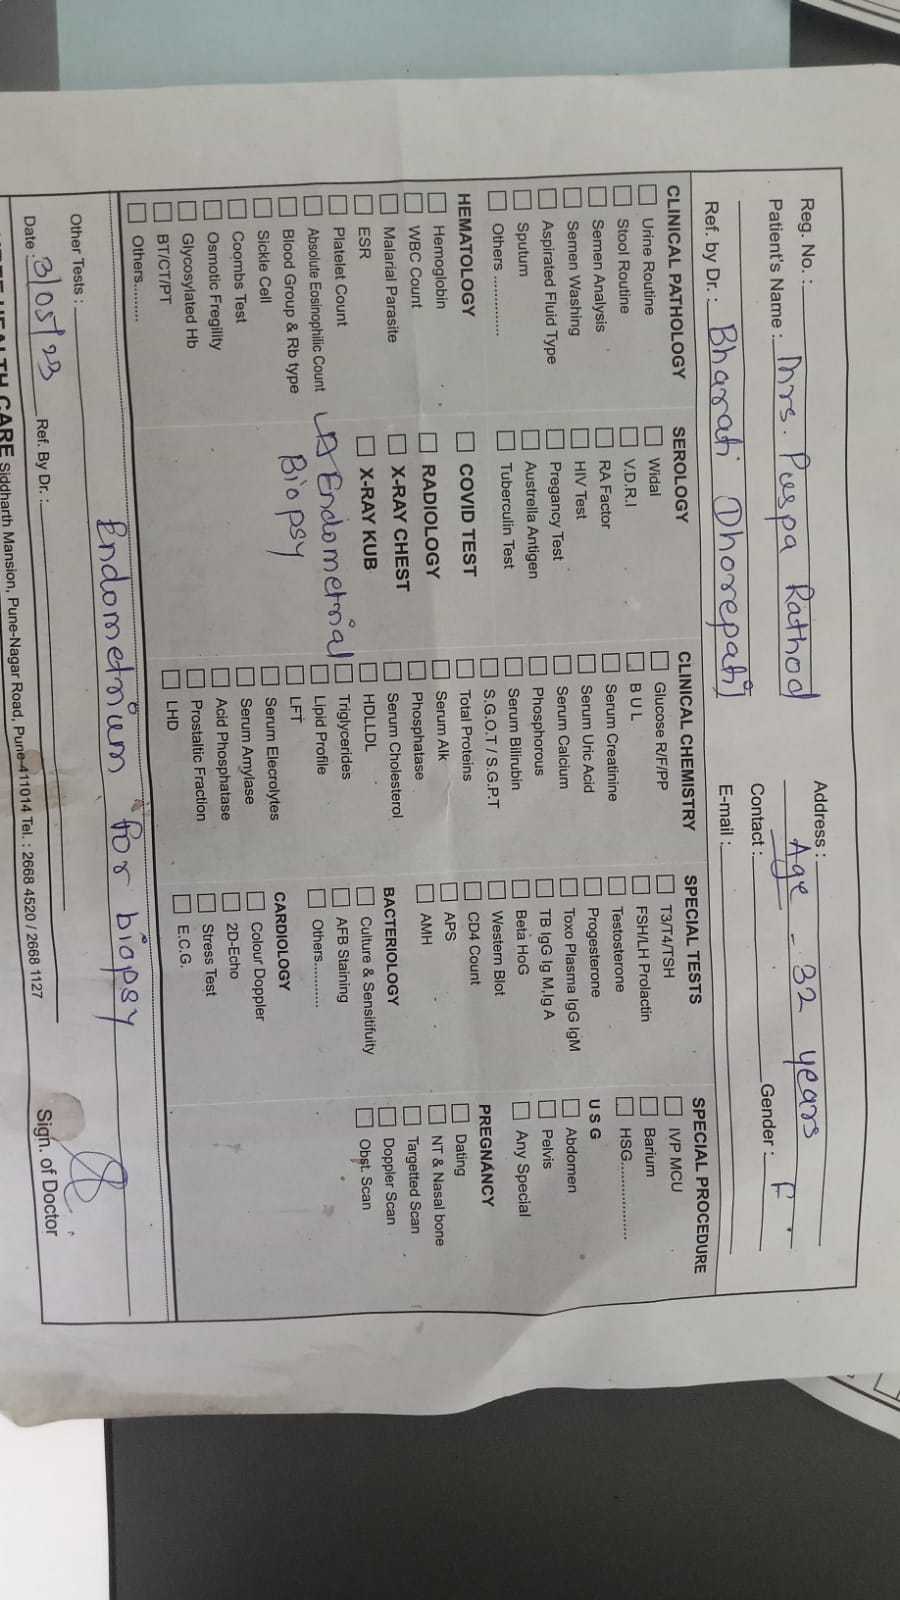 Reg. No. :
Patient's Name : Mrs. Puspa Rathod
Ref. by Dr. : Bharati Dhorepati
Address :
Age - 32 years
Contact :
Gender : F
E-mail :
CLINICAL PATHOLOGY
Urine Routine
Stool Routine
Semen Analysis
Semen Washing
Aspirated Fluid Type
Sputum
Others .............
HEMATOLOGY
Hemoglobin
WBC Count
Malarial Parasite
ESR
Platelet Count
Absolute Eosinophilic Count
Blood Group & Rb type
Sickle Cell
Coombs Test
Osmotic Fregility
Glycosylated Hb
BT/CT/PT
Others.........
SEROLOGY
Widal
V.D.R.I
RA Factor
HIV Test
Pregancy Test
Austrella Antigen
Tuberculin Test
COVID TEST
RADIOLOGY
X-RAY CHEST
X-RAY KUB
Endometrial
Biopsy
CLINICAL CHEMISTRY
Glucose R/F/PP
B U L
Serum Creatinine
Serum Uric Acid
Serum Calcium
Phosphorous
Serum Bilirubin
S.G.O.T / S.G.P.T
Total Proteins
Serum Alk
Phosphatase
Serum Cholesterol
HDLLDL
Triglycerides
Lipid Profile
LFT
Serum Elecrolytes
Serum Amylase
Acid Phosphatase
Prostaltic Fraction
LHD
SPECIAL TESTS
T3/T4/TSH
FSH/LH Prolactin
Testosterone
Progesterone
Toxo Plasma IgG IgM
TB IgG Ig M,Ig A
Beta HoG
Western Blot
CD4 Count
APS
AMH
BACTERIOLOGY
Culture & Sensitifuity
AFB Staining
Others..........
CARDIOLOGY
Colour Doppler
2D-Echo
Stress Test
E.C.G.
SPECIAL PROCEDURE
IVP MCU
Barium
HSG.................
U S G
Abdomen
Pelvis
Any Special
PREGNANCY
Dating
NT & Nasal bone
Targetted Scan
Doppler Scan
Obst. Scan
Endometrium for biopsy
Other Tests :
Date : 3/05/23
Ref. By Dr. :
Sign. of Doctor
HEALTH CARE Siddharth Mansion, Pune-Nagar Road, Pune-411014 Tel. : 2668 4520 / 2668 1127